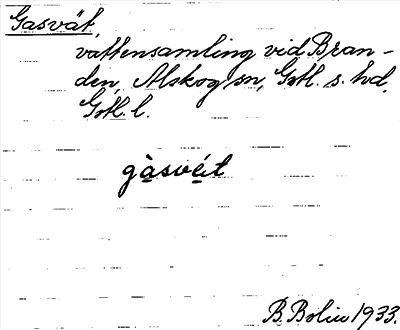 Gasvät,
vattensamling vid Bran-
den, Alskog sn, Gotl. s. hd,
Gotl. l.
gàsvéit
B. Bolin 1933.